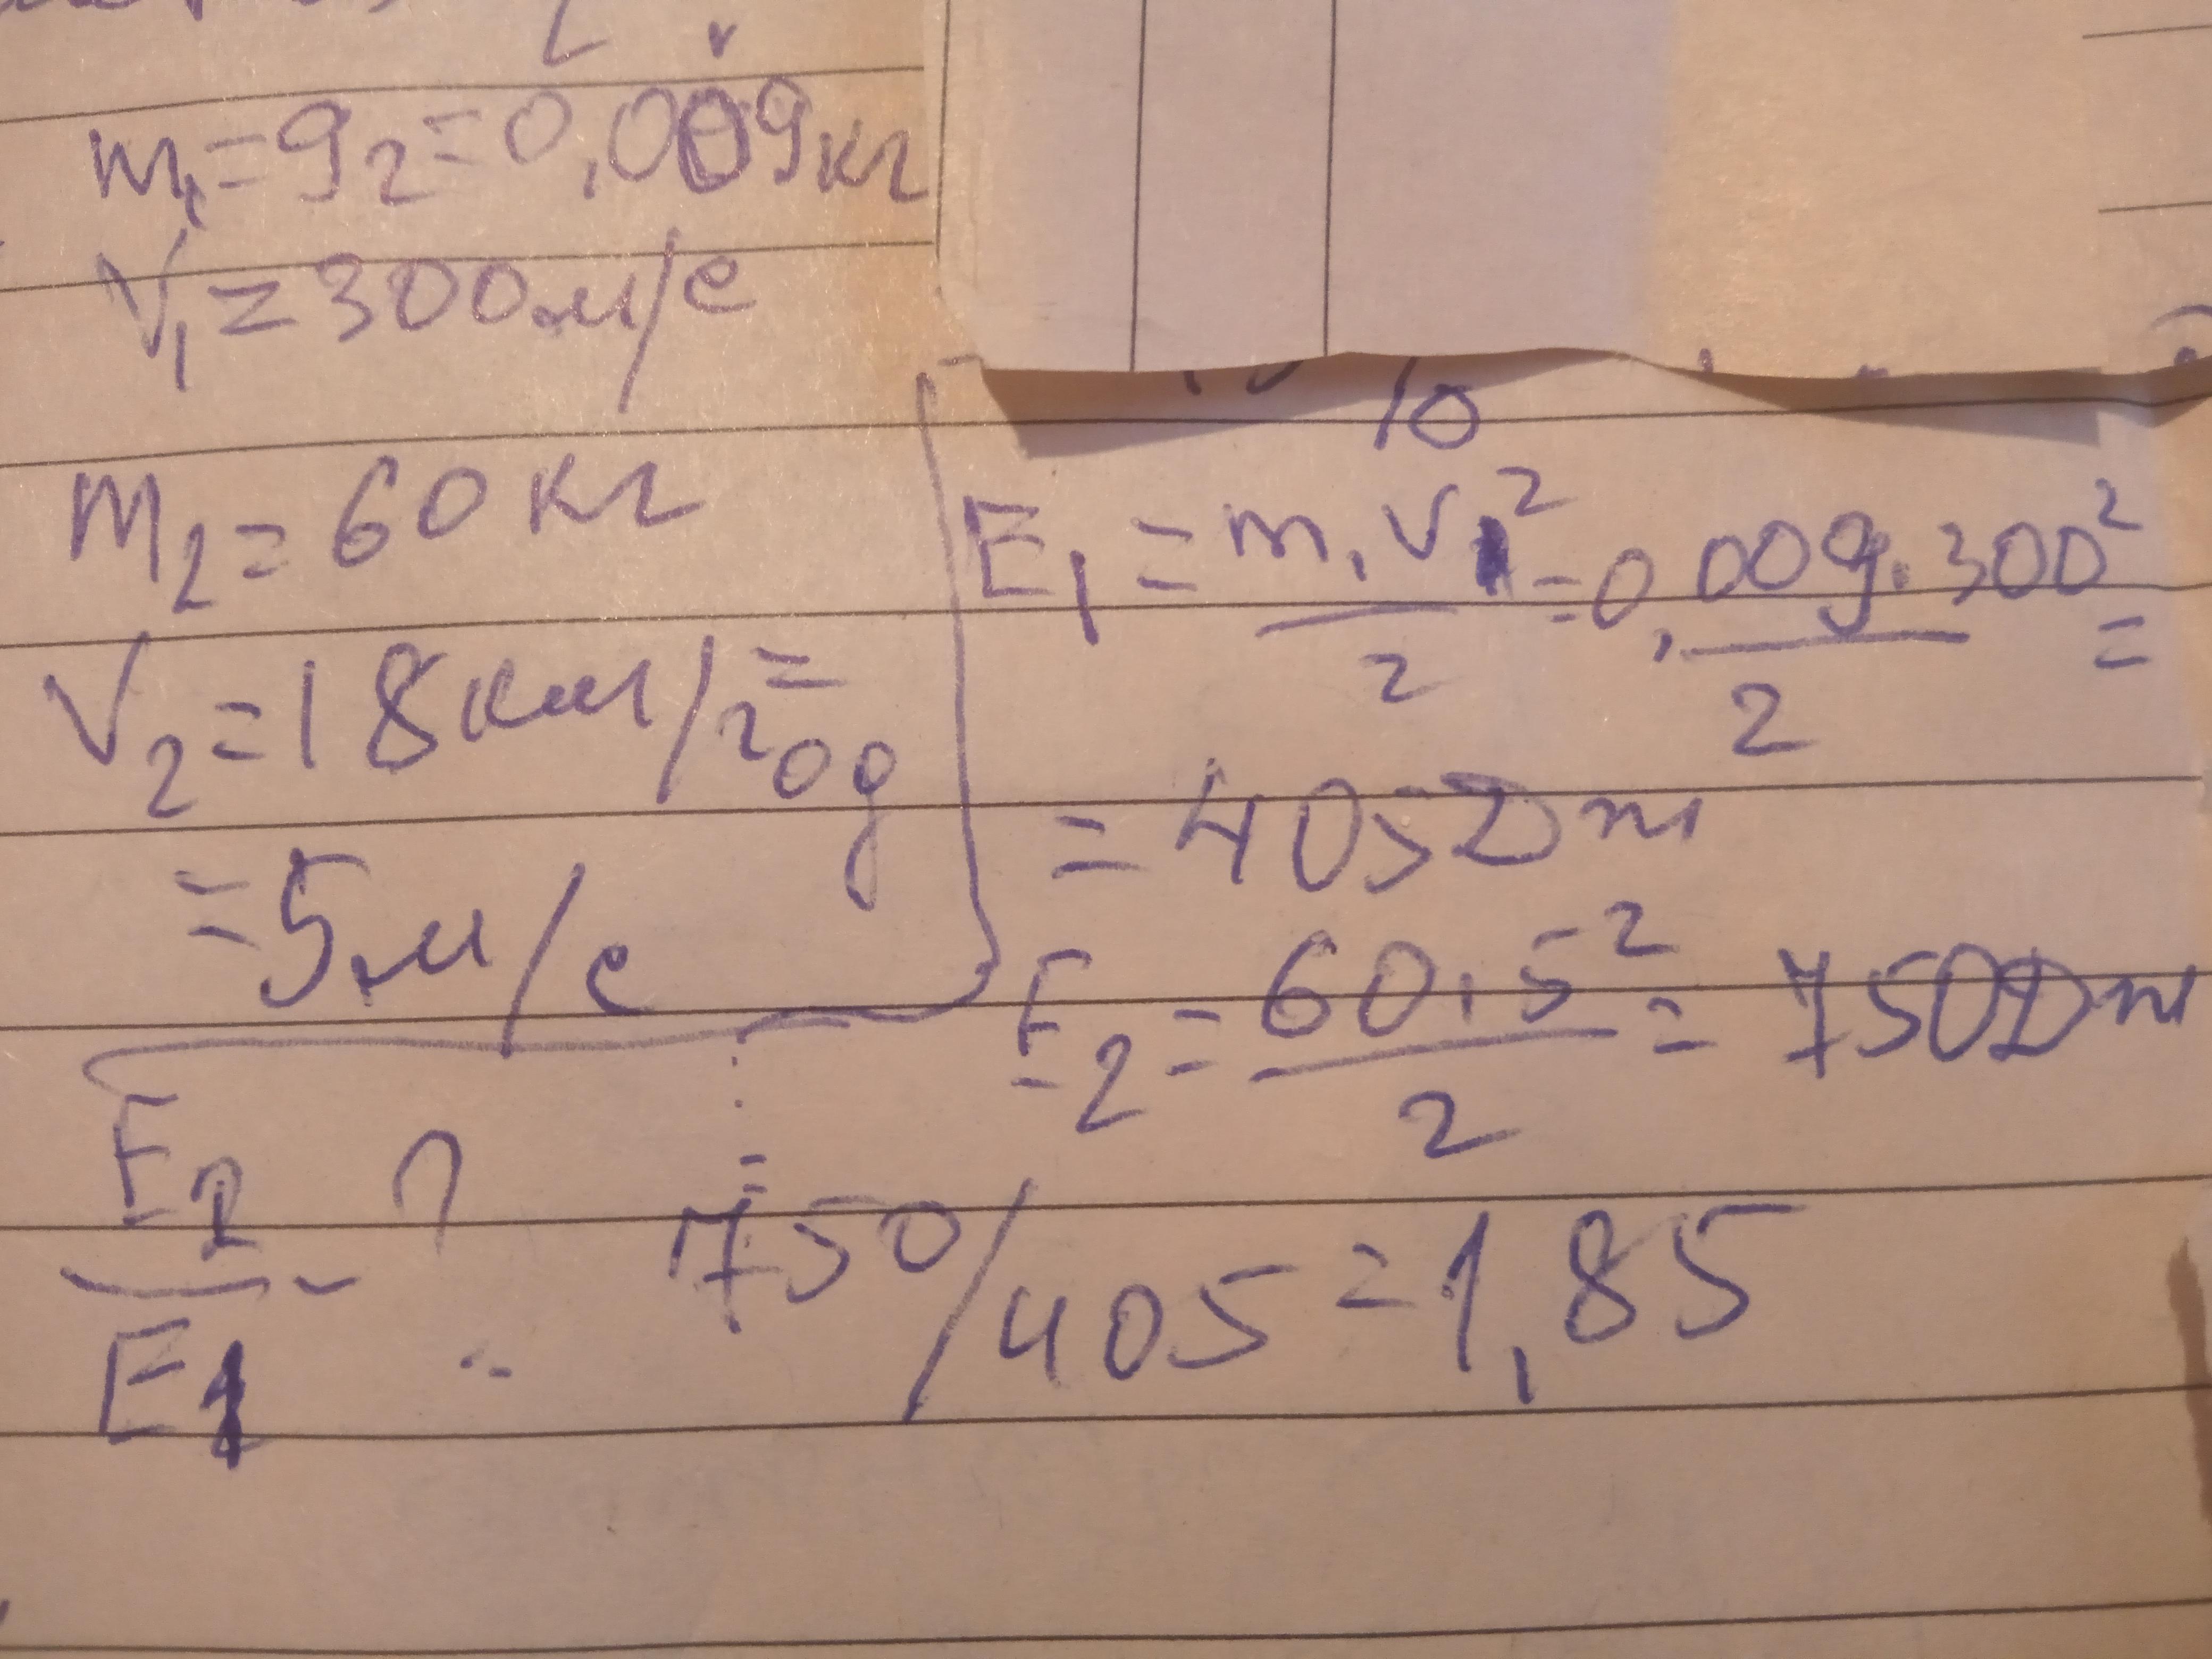 m₁=9г=0,009кг
V₁=300м/с
m₂=60кг
V₂=18км/год=
=5м/с
E₂/E₁-?
10
E₁=m₁V₁²/2=0,009·300²/2=
=405Дж
E₂=60·5²/2=750Дж
=
750/405=1,85